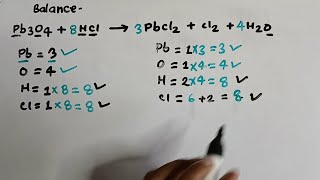 Balance-
Pb3O4 + 8HCl → 3PbCl2 + Cl2 + 4H2O
Pb = 3 ✓
O = 4 ✓
H = 1×8 = 8 ✓
Cl = 1×8 = 8 ✓
Pb = 1×3 = 3 ✓
O = 1×4 = 4 ✓
H = 2×4 = 8 ✓
Cl = 6 + 2 = 8 ✓